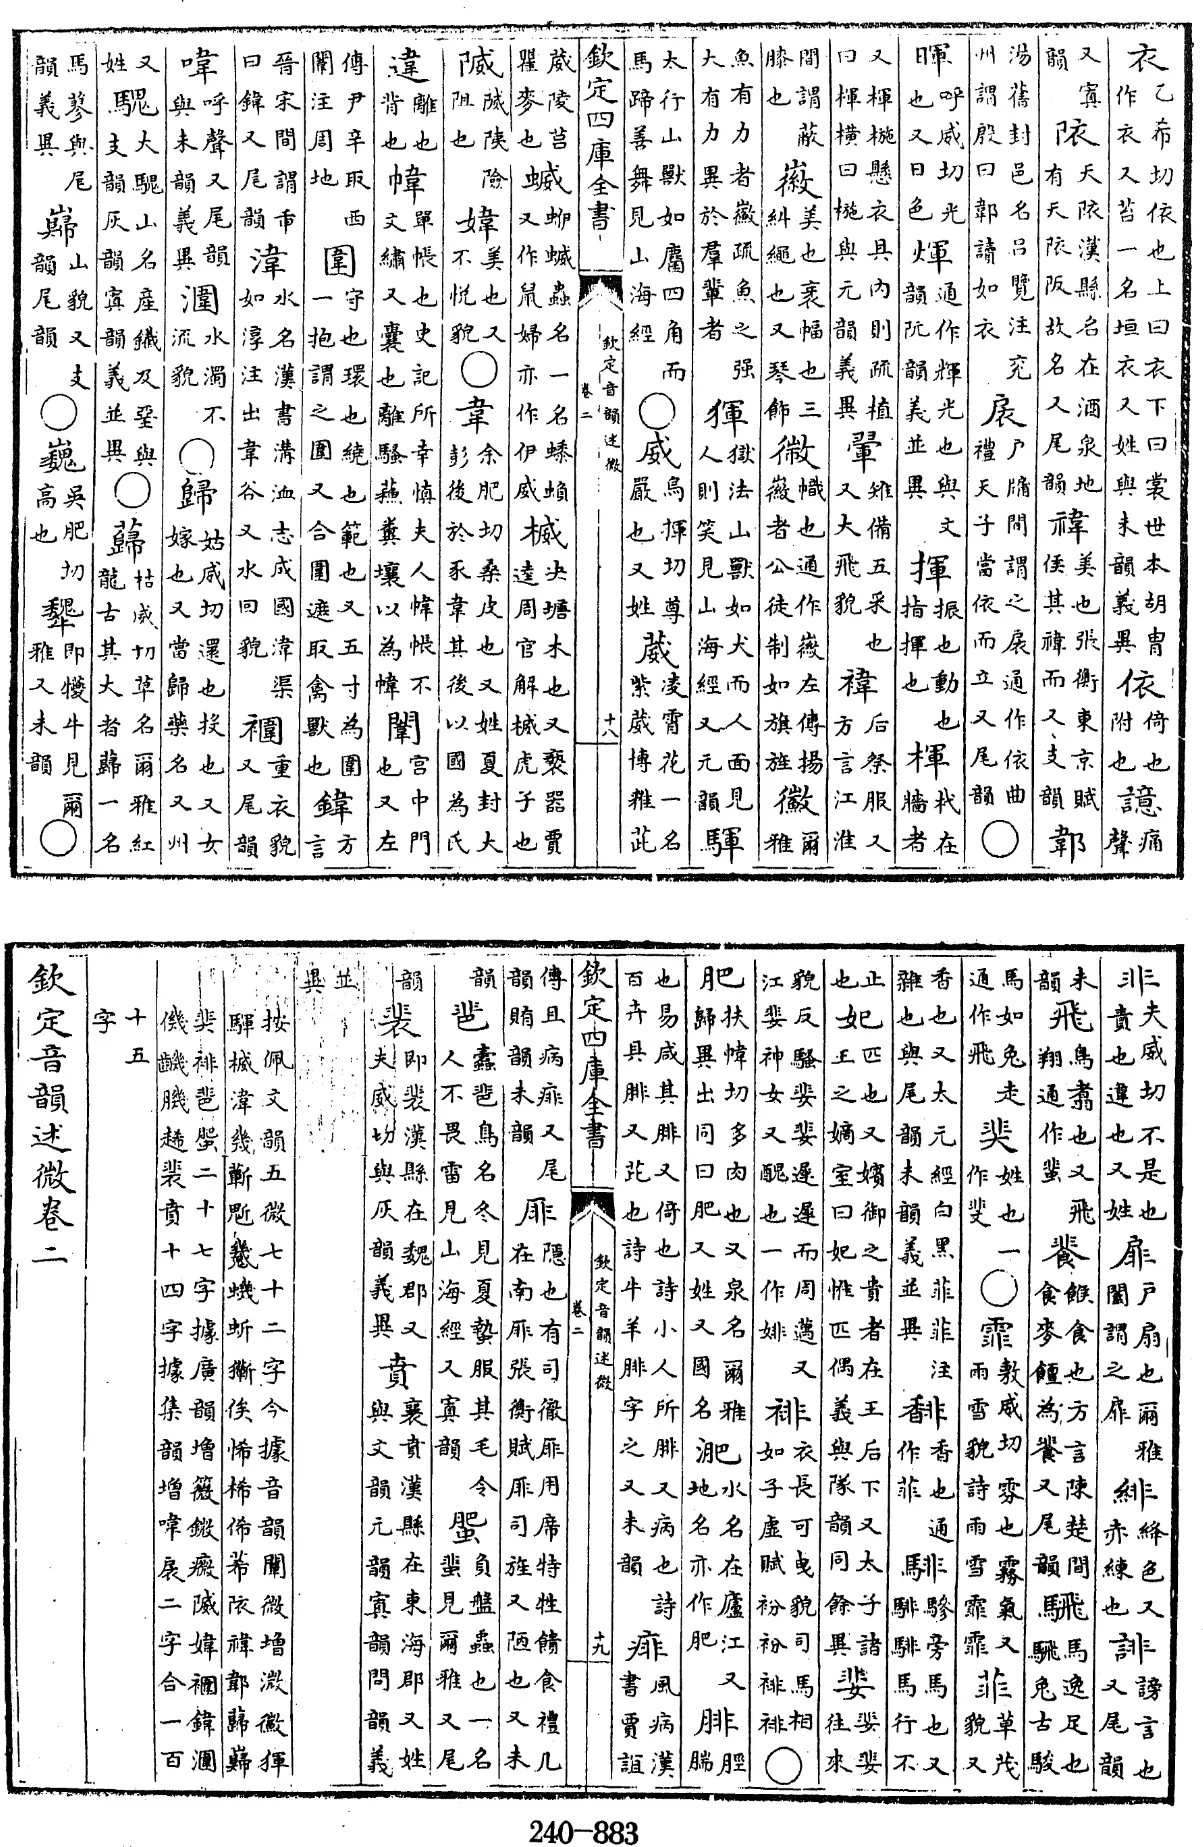 衣乙希切依也上曰衣下曰裳世本胡曹作衣又苔一名垣衣又姓與未韻義異依倚也附也譩痛聲
又寘韻天漢縣名在酒泉地有天阪故名又尾韻禕美也張衡東京賦侯其禕而又支韻郼
湯舊封邑名呂覽注兖州謂殷曰郼讀如衣扆戶牖間謂之扆通作依曲禮天子當依而立又尾韻○
暉呼威切光也又日色煇通作輝光也與文韻阮韻義並異揮振也動也指揮也楎杙在牆者
又楎椸懸衣具內則疏植曰楎橫曰椸與元韻義異翬雉備五采也又大飛貌褘后祭服又方言江淮
間謂蔽膝也徽美也裹幅也三糾繩也又琴飾㣲幟也通作徽左傳揚徽者公徒制如旗旌徽爾雅
魚有力者徽疏魚之强大有力異於羣輩者獋獄法山獸如犬而人面見人則笑見山海經又元韻驒
太行山獸如麢四角而馬蹄善舞見山海經○威烏揮切尊嚴也又姓葳凌霄花一名紫葳博雅茈
葳陵苕瞿麥也蝛蛜蝛蟲名一名蟠蝜又作鼠婦亦作伊威楲決塘木也又褻器賈逵周官解楲虎子也
隇隇陝險阻也媁美也又不悅貌○韋余肥切柔皮也又姓夏封大彭後於豕韋其後以國為氏
違離也背也幃單帳也史記所幸慎夫人幃帳不文繡又囊也離騷蘇糞壤以為幃闈宮中門也又左
傳尹辛取西闈注周地圍守也環也繞也範也又五寸為圍一抱謂之圍又合圍遮取禽獸也鍏方言
晉宋間謂臿曰鍏又尾韻湋水名漢書溝洫志成國湋渠如淳注出韋谷又水回貌𧝕重衣貌又尾韻
喡呼聲又尾韻與未韻義異潿水濁不流貌○歸姑威切還也投也又女嫁也又當歸藥名又州
又姓騩大騩山名產鐵及堊與支韻灰韻寘韻義並異○蘬枯威切草名爾雅紅蘢古其大者蘬一名
馬蓼與尾韻義異巋山貌又支韻尾韻○巍吳肥切高也犩即犪牛見爾雅又未韻○
欽定四庫全書
欽定音韻述微
卷二
十八
非夫威切不是也責也違也又姓扉戶扇也爾雅闔謂之扉緋絳色又赤練也誹謗言也又尾韻
未韻飛鳥翥也又飛翔通作蜚餥餱食也方言陳楚間食麥饘為餥又尾韻騛馬逸足也騛兔古駿
馬如兔走通作飛猆姓也一作斐○霏敷威切雰也霧氣又雨雪貌詩雨雪霏霏菲草茂貌又
香也又太元經白黑菲菲注雜也與尾韻未韻義並異馡香也通作菲騑驂旁馬也又騑騑馬行不
止也妃匹也又嬪御之貴者在王后下又太子諸王之嫡室曰妃惟匹偶義與隊韻同餘異婓婓婓往來
貌反騷婓婓遲遲而周邁又江婓神女又醜也一作婔裶衣長可曳貌司馬相如子虛賦衯衯裶裶○
肥扶幃切多肉也又泉名爾雅歸異出同曰肥又姓又國名淝水名在廬江又地名亦作肥腓脛腨
也易咸其腓又倚也詩小人所腓又病也詩百卉具腓又芘也詩牛羊腓字之又未韻痱風病漢書賈誼
傳且病痱又尾韻賄韻未韻厞隱也有司徹厞用席特牲饋食禮几在南厞張衡賦厞司旌又陋也又未
韻蠹鳥名冬見夏蟄服其毛令人不畏雷見山海經又寘韻蜰負盤蟲也一名蜚見爾雅又尾
韻裴即裴漢縣在魏郡又夫威切與灰韻義異賁襄賁漢縣在東海郡又姓與文韻元韻寘韻問韻義
並異
按佩文韻五微七十二字今據音韻闡微增溦徽揮
驒楲湋幾蘄虺蟣蚚俟悕桸俙莃禕郼蘬巋
猆裶蜰二十七字據廣韻增𧝕鍏潿
十四字據集韻增喡扆二字合一百
十五字
欽定音韻述微卷二
欽定四庫全書
欽定音韻述微
卷二
十九
240-883